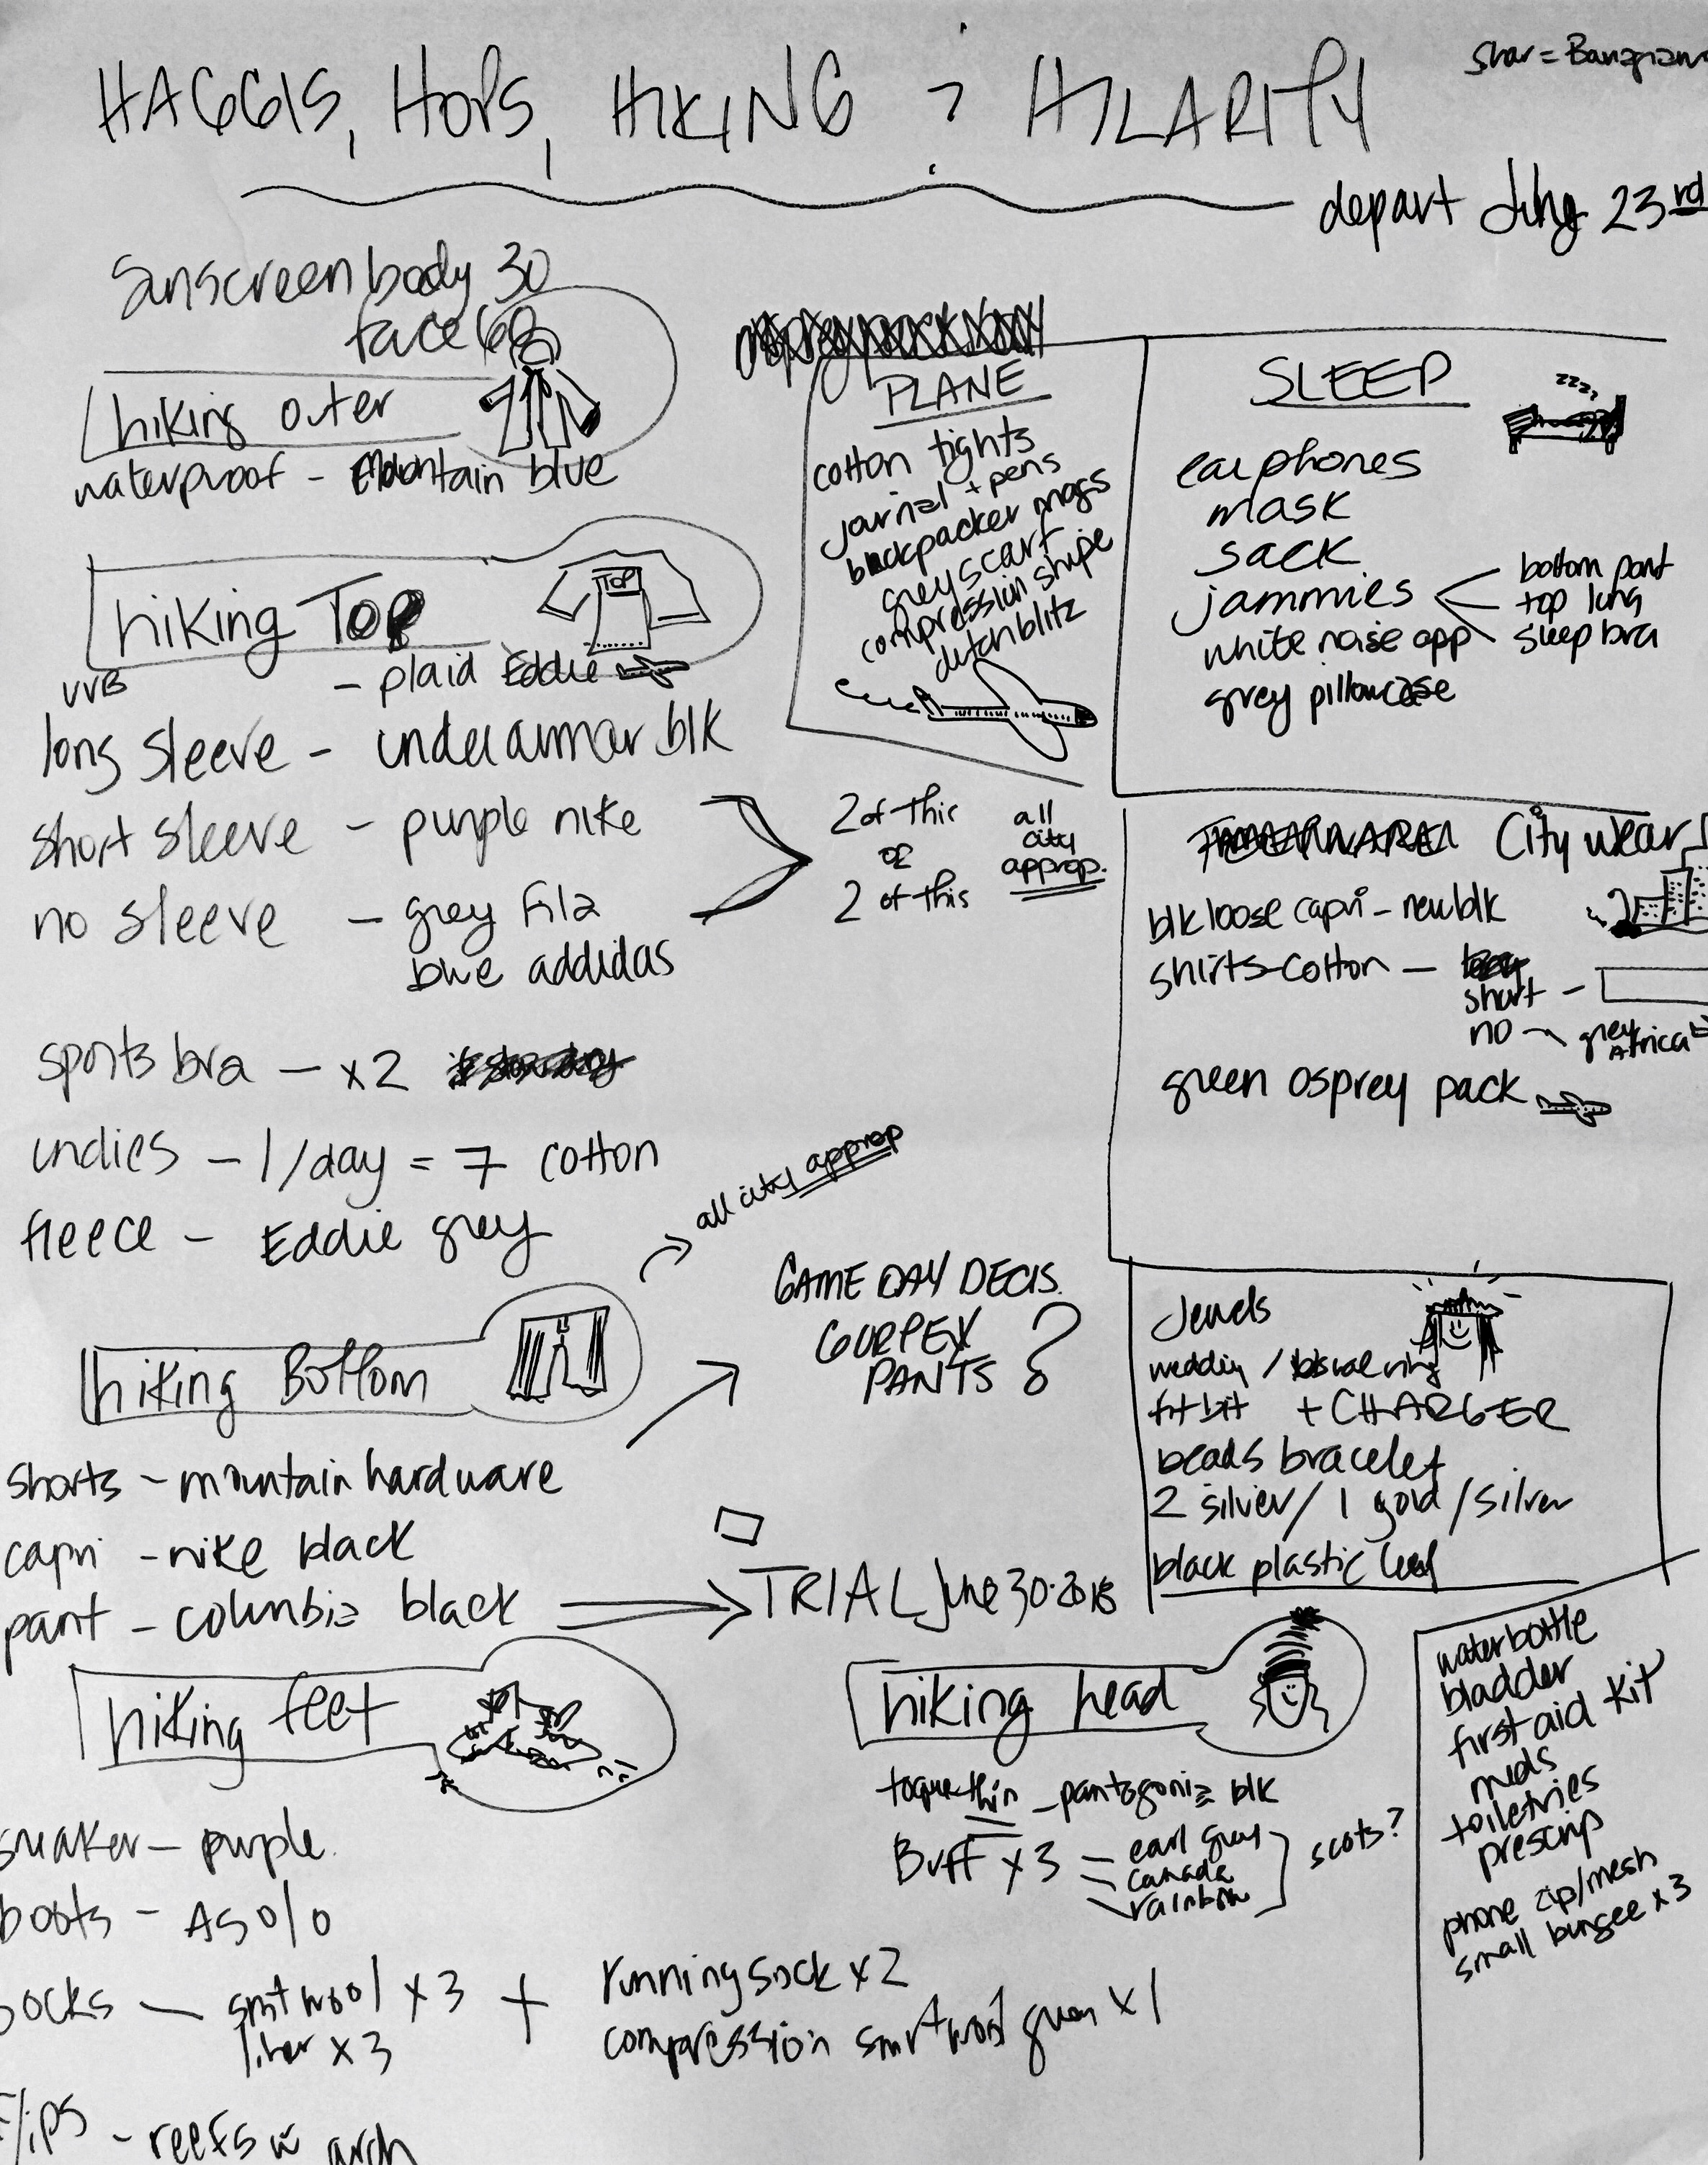 HAGGIS, HOPS, HIKING & HILARITY
Shar = Banagram
depart July 23rd
Sunscreen body 30
face 60
hiking outer
waterproof - Mountain blue
hiking TOP
TOP
- plaid Eddie
long sleeve - underarmar blk
short sleeve - purple nike
no sleeve - grey Fila
blue addidas
2 of this
or
2 of this
all
city
approp.
sports bra - x2
undies - 1/day = 7 cotton
fleece - Eddie grey
PLANE
cotton tights
journal + pens
backpacker mags
grey scarf
compression stripe
dutch blitz
SLEEP
zzz
earphones
mask
sack
jammies
bottom pant
top long
sleep bra
white noise app
grey pillowcase
City wear
blk loose capri - new blk
shirts - cotton -
short -
no - grey
Africa
green osprey pack
all city approp
hiking Bottom
shorts - mountain hardware
capri - nike black
pant - columbia black
GAME DAY DECIS.
GORPEX
PANTS ?
TRIAL June 30.2018
Jewels
wedding / ring
fitbit + CHARGER
beads bracelet
2 silver / 1 gold / silver
black plastic
hiking feet
sneaker - purple
boots - Asolo
socks - smtwool x3 + running sock x2
liner x3
compression smrtwool green x1
flips - reefs w arch
hiking head
toque thin - pantagonia blk
Buff x3 - earl grey
canada
rainbow
scots?
waterbottle
bladder
first aid kit
meds
toiletries
prescrip
phone zip/mesh
small bungee x3